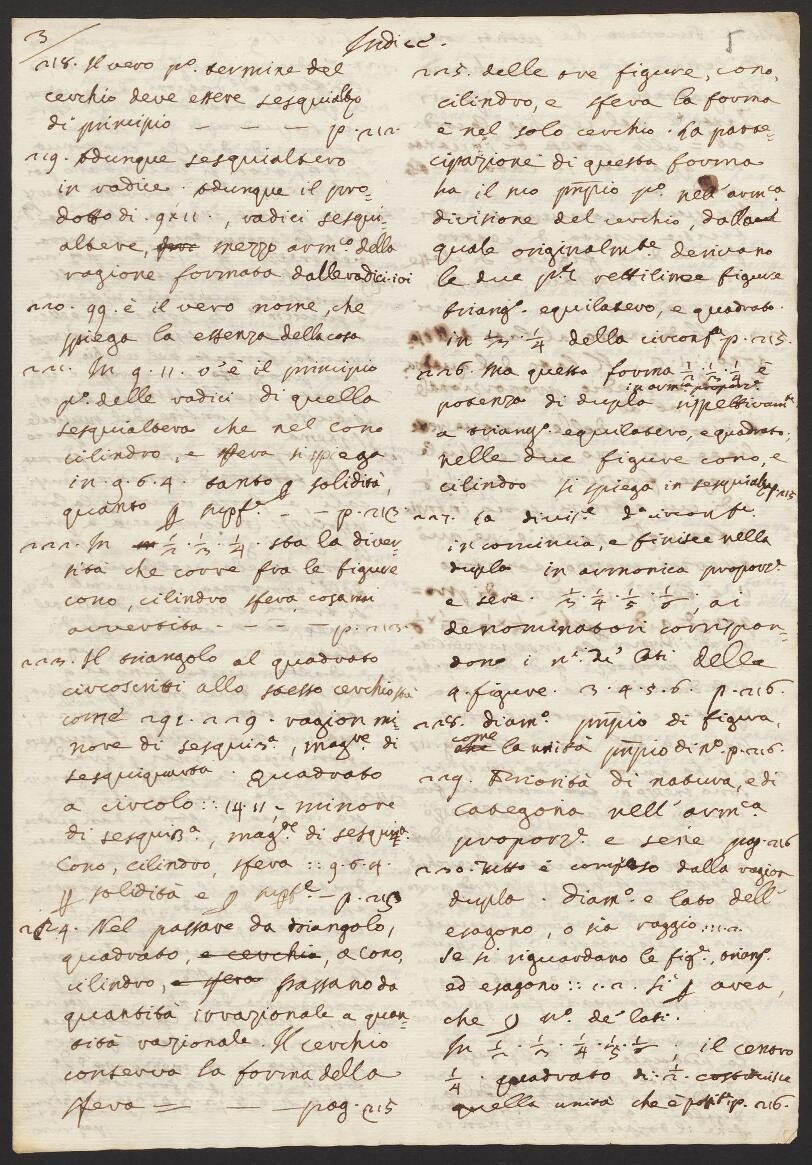 3
Indice.
5
218. Il vero pº. termine del
cerchio deve essere sesquialtº
di principio - - - p. 212.
219. Adunque sesquialtero
in radice. Adunque il pro=
dotto di. 9×11., radici sesqui=
altere, mezzo armº. della
ragione formata dalle radici. ivi
220. 99. è il vero nome, che
spiega la essenza della cosa
221. In 9. 11. v'è il principio
pº. delle radici di quella
sesquialtera che nel cono
cilindro, e sfera si spiega
in. 9. 6. 4. tanto ꝑ solidità,
quanto ꝑ supfᵉ. - - p. 213
222. In 1/2. 1/3. 1/4. sta la diver=
sità che corre fra le figure
cono, cilindro sfera, cosa mai
avvertita - - - - p. 213.
223. Il triangolo al quadrato
circoscritti allo stesso cerchio sta
come 291. 229. ragion mi=
nore di sesqui3ª, magʳᵉ. di
sesquiquarta. quadrato
a circolo :: 14. 11., minore
di sesqui3ª, magʳᵉ. di sesqui4ª.
Cono, cilindro, sfera :: 9. 6. 4.
ꝑ solidità e ꝑ supfᵉ. - p. 213
224. Nel passare da triangolo,
quadrato, e cerchio, a cono,
cilindro, e sfera passano da
quantità irrazionale a quan=
tità razionale. Il cerchio
conserva la forma della
sfera = - - pag. 215
225. delle tre figure, cono,
cilindro, e sfera la forma
è nel solo cerchio. La parte=
cipazione di questa forma
ha il suo pñpio pº. nell'armᶜᵃ.
divisione del cerchio, dalla
quale originalmᵗᵉ. derivano
le due pᵉ. rettilinee figure
triangº. equilatero, e quadrato.
in 1/3. 1/4 della circonfª p. 215.
226. Ma questa forma 1/2. 1/3. 1/4 è
in armᶜᵃ proporzᵉ.
potenza di dupla rispettivamᵗᵉ
a triangº. equilatero, e quadrato;
nelle due figure cono, e
cilindro si spiega in sesquialtª p. 215
227. La divisᵉ. dª circonfᵃ.
incomincia, e finisce nella
dupla in armonica proporzᵉ.
e serie. 1/3. 1/4. 1/5. 1/6.; a i
denominatori corrispon=
dono i nⁱ. de' lati delle
4. figure. 3. 4. 5. 6. p. 216.
228. diamº. pñpio di figura,
come
la unità pñpio di nº. p. 216.
229. Priorità di natura, e di
categoria nell'armᶜᵃ.
proporzᵉ. e serie pag. 216
230. Tutto è compreso dalla ragion
dupla. diamº. e lato dell'
esagono, o sia raggio :: 1. 2.
Se si riguardano le figᵉ., triangº.
ed esagono :: 1. 2. si ꝑ area,
che ꝑ nº. de' lati.
In 1/2. 1/3. 1/4. 1/5. 1/6; il centro
1/4. quadrato di. 1/2. costituisce
quella unità che è p. 216.